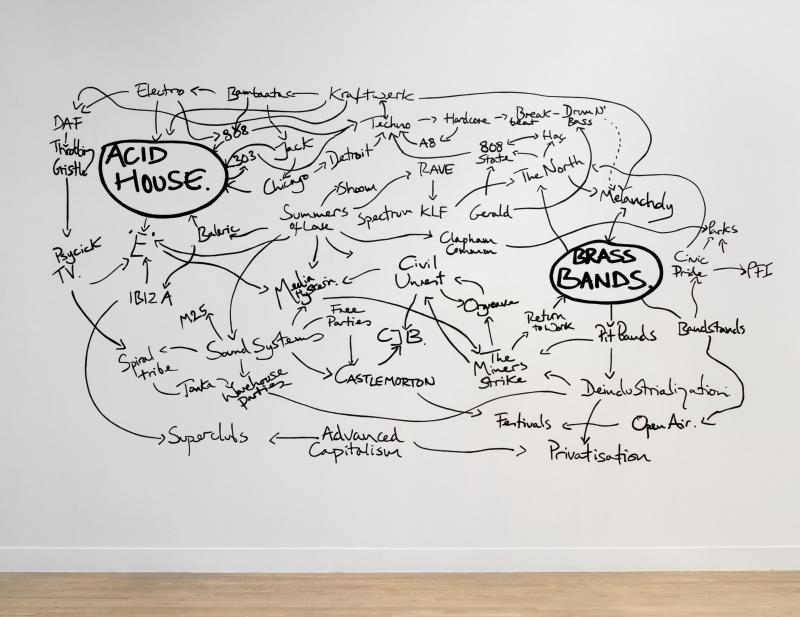 Electro
Bambaataa
Kraftwerk
DAF
Throbbing
Gristle
808
Techno
Hardcore
Break-
beat
Drum N'
Bass
ACID
HOUSE.
303
Jack
A8
808
State
Haç
Chicago
Detroit
RAVE
The North
Shoom
Melancholy
Summers
of Love
Spectrum
KLF
Gerald
Balaric
Clapham
Common
Parks
"E"
Psychick
TV.
BRASS
BANDS.
Civic
Pride
PFI
Media
Hysteria.
Civil
Unrest
IBIZA
Orgreave
M25
Free
Parties
Return
to Work
Sound Systems
CJB.
Pit Bands
Bandstands
Spiral
tribe
The
Miners
Strike
Tonka
Warehouse
Parties
CASTLEMORTON
Deindustrialization
Festivals
Open Air.
Superclubs
Advanced
Capitalism
Privatisation